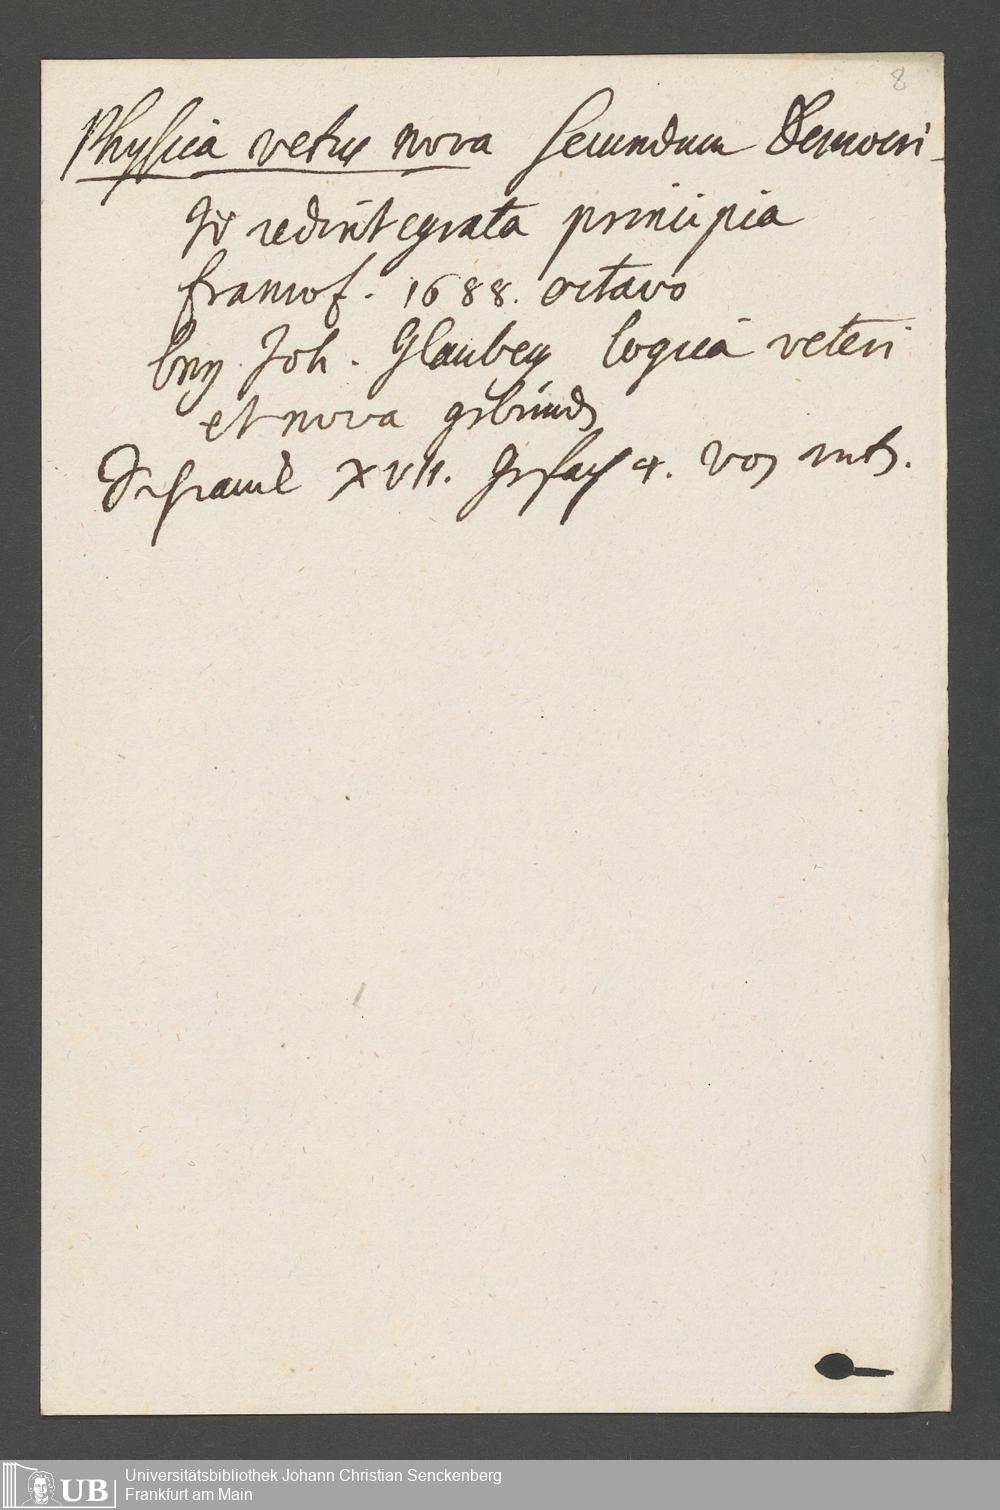 8
Physica vetus nova secundum Democri-
ti redintegrata principia
francof. 1688. octavo
bey Joh. Glaubey logica veteri
et nova gebunden
Schranck XVII. Gefach 4. von unten.
UB
Universitätsbibliothek Johann Christian Senckenberg
Frankfurt am Main